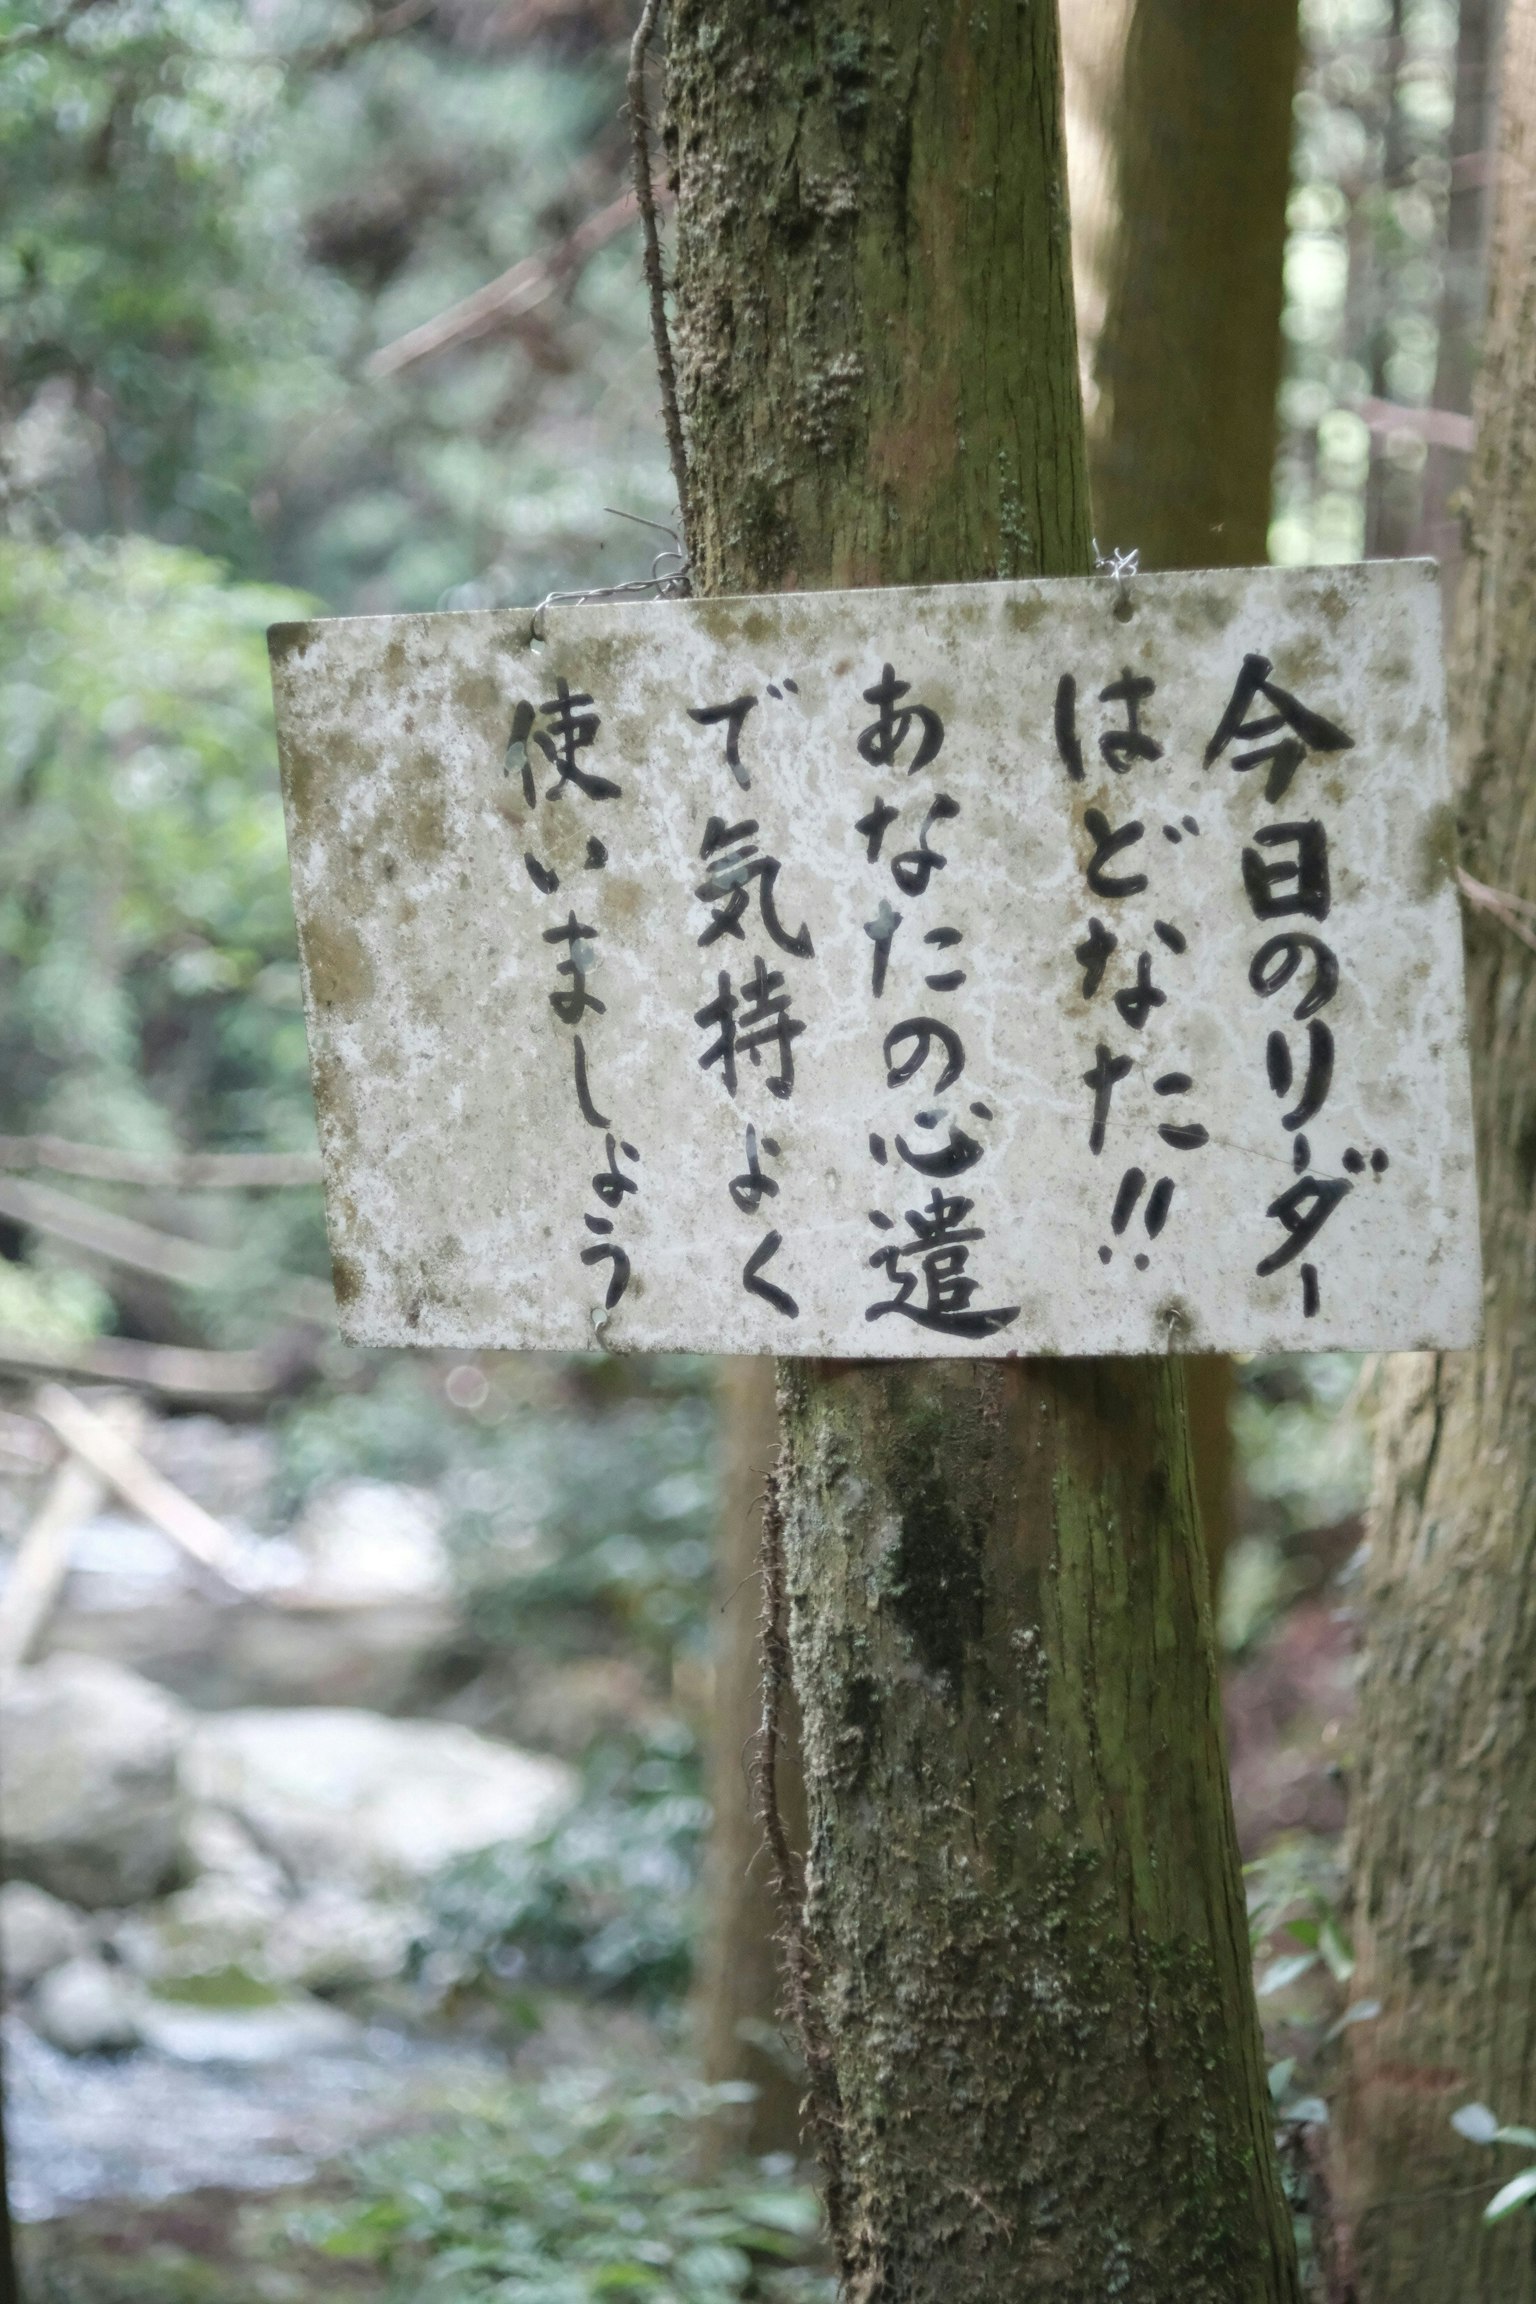 今日のリーダー
はどなた!!
あなたの心遣
で気持よく
使いましょう